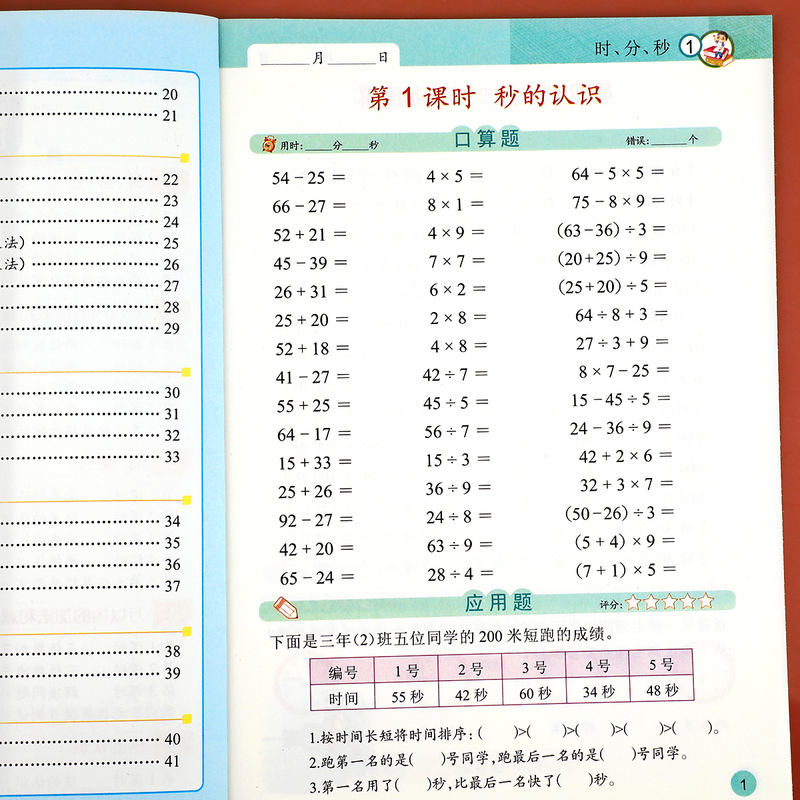 20
21
22
23
24
法） 25
法） 26
27
28
29
30
31
32
33
34
35
36
37
38
39
40
41
______月______日
时、分、秒 1
第1课时 秒的认识
用时：____分____秒 口算题 错误：______个
54－25＝ 4×5＝ 64－5×5＝
66－27＝ 8×1＝ 75－8×9＝
52＋21＝ 4×9＝ （63－36）÷3＝
45－39＝ 7×7＝ （20＋25）÷9＝
26＋31＝ 6×2＝ （25＋20）÷5＝
25＋20＝ 2×8＝ 64÷8＋3＝
52＋18＝ 4×8＝ 27÷3＋9＝
41－27＝ 42÷7＝ 8×7－25＝
55＋25＝ 45÷5＝ 15－45÷5＝
64－17＝ 56÷7＝ 24－36÷9＝
15＋33＝ 15÷3＝ 42＋2×6＝
25＋26＝ 36÷9＝ 32＋3×7＝
92－27＝ 24÷8＝ （50－26）÷3＝
42＋20＝ 63÷9＝ （5＋4）×9＝
65－24＝ 28÷4＝ （7＋1）×5＝
应用题 评分：☆☆☆☆☆
下面是三年（2）班五位同学的200米短跑的成绩。
编号 1号 2号 3号 4号 5号
时间 55秒 42秒 60秒 34秒 48秒
1.按时间长短将时间排序：（ ）>（ ）>（ ）>（ ）>（ ）。
2.跑第一名的是（ ）号同学，跑最后一名的是（ ）号同学。
3.第一名用了（ ）秒，比最后一名快了（ ）秒。
1